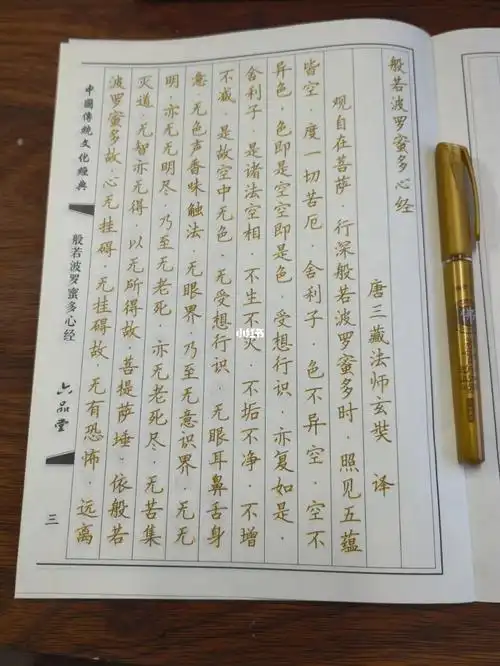 般若波罗蜜多心经
唐三藏法师玄奘 译
观自在菩萨·行深般若波罗蜜多时·照见五蕴
皆空·度一切苦厄·舍利子·色不异空·空不
异色·色即是空空即是色·受想行识·亦复如是·
舍利子·是诸法空相·不生不灭·不垢不净·不增
不减·是故空中无色·无受想行识·无眼耳鼻舌身
意·无色声香味触法·无眼界·乃至无意识界·无无
明·亦无无明尽·乃至无老死·亦无老死尽·无苦集
灭道·无智亦无得·以无所得故·菩提萨埵·依般若
波罗蜜多故·心无挂碍·无挂碍故·无有恐怖·远离
中國傳統文化經典
般若波罗蜜多心经
六品堂
三
小红书
佛